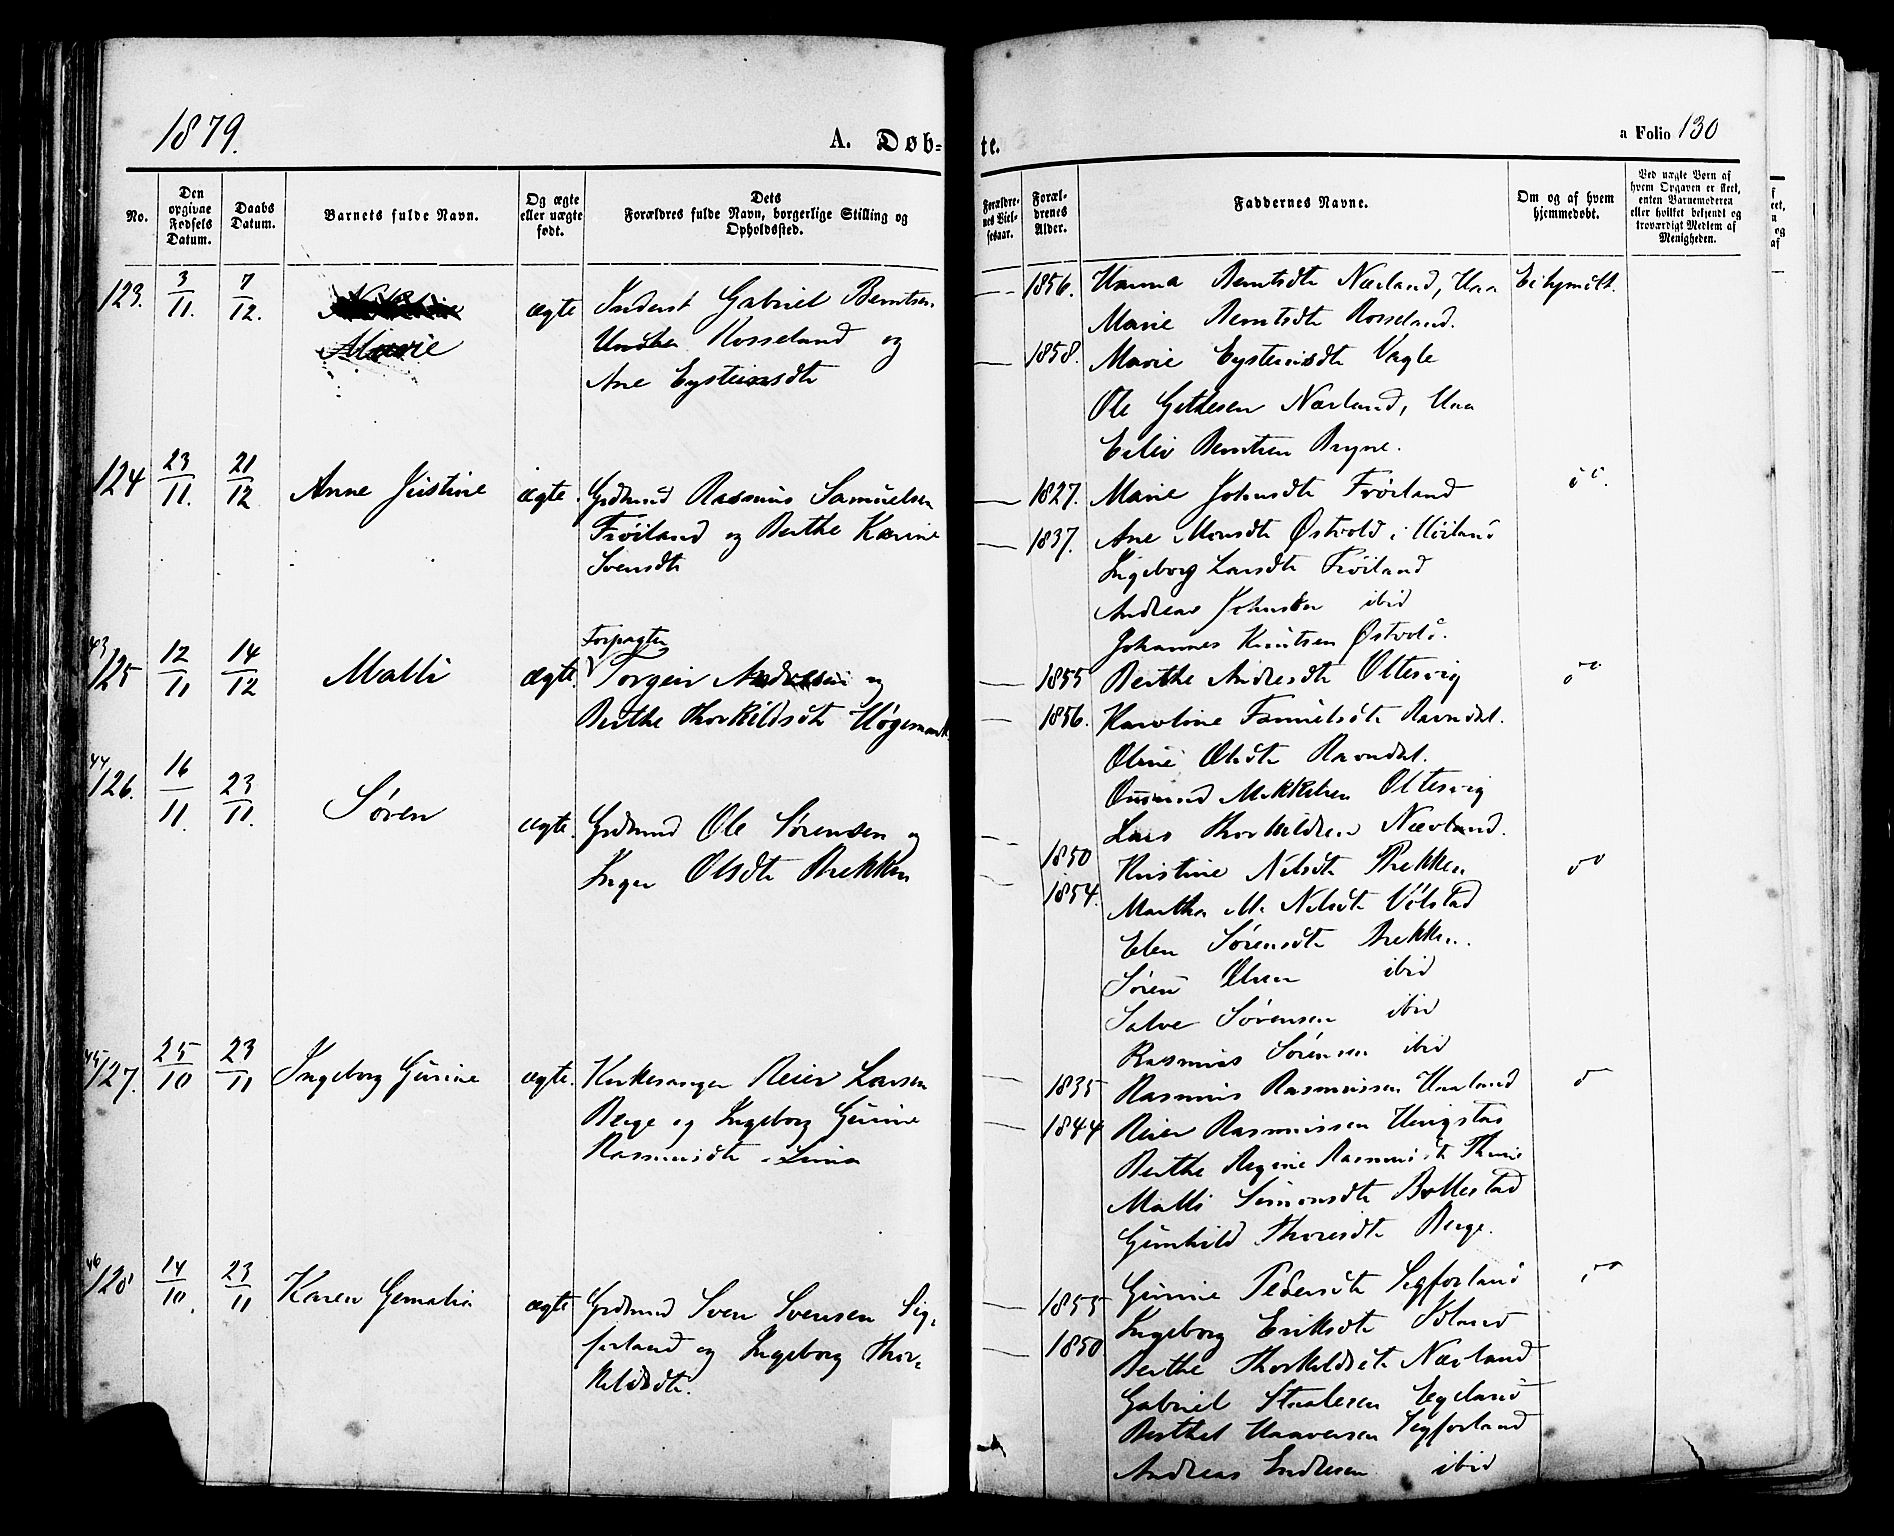 1879.
A. Døb-
te.
a Folio 130
No.
Den opgivne Fødsels Datum.
Daabs Datum.
Barnets fulde Navn.
Og ægte eller uægte født.
Dets Forældres fulde Navn, borgerlige Stilling og Opholdssted.
Forældrenes Vielsesaar.
Forældrenes Alder.
Faddernes Navne.
Om og af hvem hjemmedøbt.
Ved uægte Børn af hvem Opgaven er skeet, enten Barnemoderen eller hvilket bekjendt og troværdigt Medlem af Menigheden.
123. 3/11. 7/12. Marie ægte Inderst Gabriel Berntsen
Rosseland og
Ane Eysteinsdtr
1856. Berntsdtr Nærland, Haa
Marie Berntsdtr Rosseland.
1858. Marie Eysteinsdtr Vagle
Ole Nærland, Haa
Berntsen Bryne.
124 23/11. 21/12 Anne Justine ægte. Grdmnd Rasmus Samuelsen
Frøiland og Berthe Karine
Svensdtr
1827. Marie Johnsdtr Frøiland
1837. Ane Monsdtr Østvold i Høiland
Ingeborg Larsdtr Frøiland
Andreas Johnsen ibid
Johannes Knutsen Østvold.
43
125 12/11 14/12 Malli ægte. Forpagter
Torgeir og
Berthe Thorkildsdtr
1855 Berthe Andresdtr Ottesvig
1856. Karoline Ravndal.
Oline Olsdtr Ravndal.
Mikkelsen Ottesvig
Lars Thorkildsen Nærland.
44
126. 16/11. 23/11. Søren ægte. Grdmnd Ole Sørensen og
Inger Olsdtr Brekken
1850 Kristine Nilsdtr Brekken
1854. Martha M. Nilsdtr Vølstad
Elen Sørensdtr Brekken.
Søren Olsen ibid
Salve Sørensen ibid
Rasmus Sørensen ibid
45
127. 25/10 23/11 Ingeborg Gurine ægte. Kirkesanger Reier Larsen
Berge og Ingeborg Gurine
Rasmusdtr i Lima
1835 Rasmus Rasmussen Haaland
1844 Reier Rasmussen Ueigstad
Berthe Regine Rasmusdtr Thime
Malli Simonsdtr Bollestad
Gunhild Thoresdtr Berge.
46
128 14/10. 23/11 Karen Gemalia ægte Grdmnd Sven Svensen Sig-
forland og Ingeborg Thor-
kildsdtr.
1855 Gurine Pedersdtr Segforland
1850 Ingeborg Eriksdtr
Berthe Thorkildsdtr Nærland
Gabriel Staalesen Egeland
Berthel Haaversen Segforland
Andreas Endresen ibid